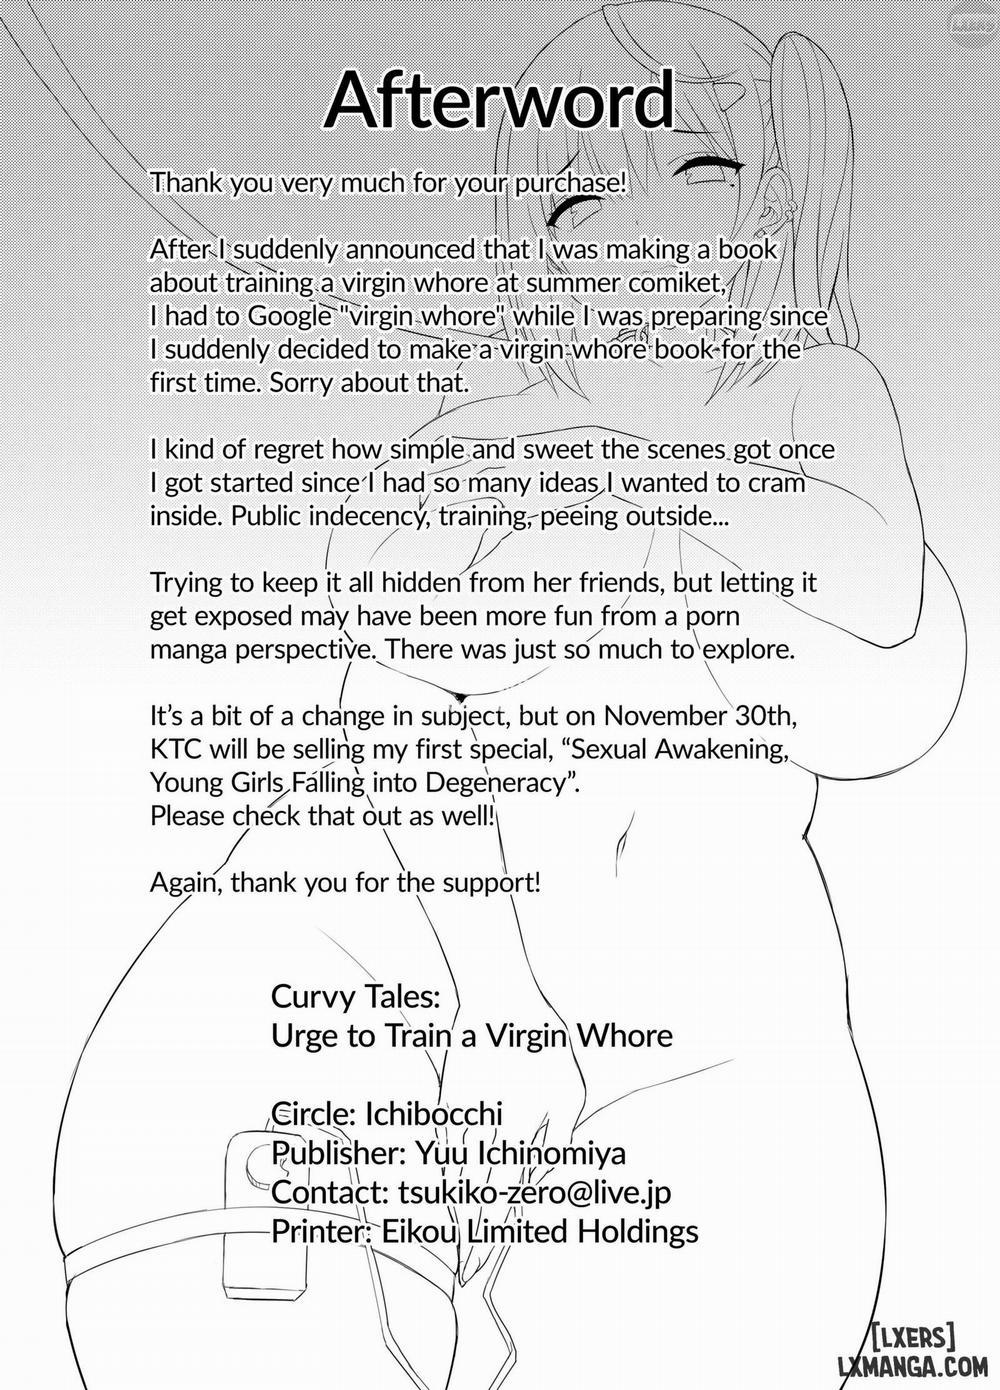 LXERS
Afterword
Thank you very much for your purchase!
After I suddenly announced that I was making a book
about training a virgin whore at summer comiket,
I had to Google "virgin whore" while I was preparing since
I suddenly decided to make a virgin whore book for the
first time. Sorry about that.
I kind of regret how simple and sweet the scenes got once
I got started since I had so many ideas I wanted to cram
inside. Public indecency, training, peeing outside...
Trying to keep it all hidden from her friends, but letting it
get exposed may have been more fun from a porn
manga perspective. There was just so much to explore.
It’s a bit of a change in subject, but on November 30th,
KTC will be selling my first special, “Sexual Awakening,
Young Girls Falling into Degeneracy”.
Please check that out as well!
Again, thank you for the support!
Curvy Tales:
Urge to Train a Virgin Whore
Circle: Ichibocchi
Publisher: Yuu Ichinomiya
Contact: tsukiko-zero@live.jp
Printer: Eikou Limited Holdings
[LXERS]
LXMANGA.COM